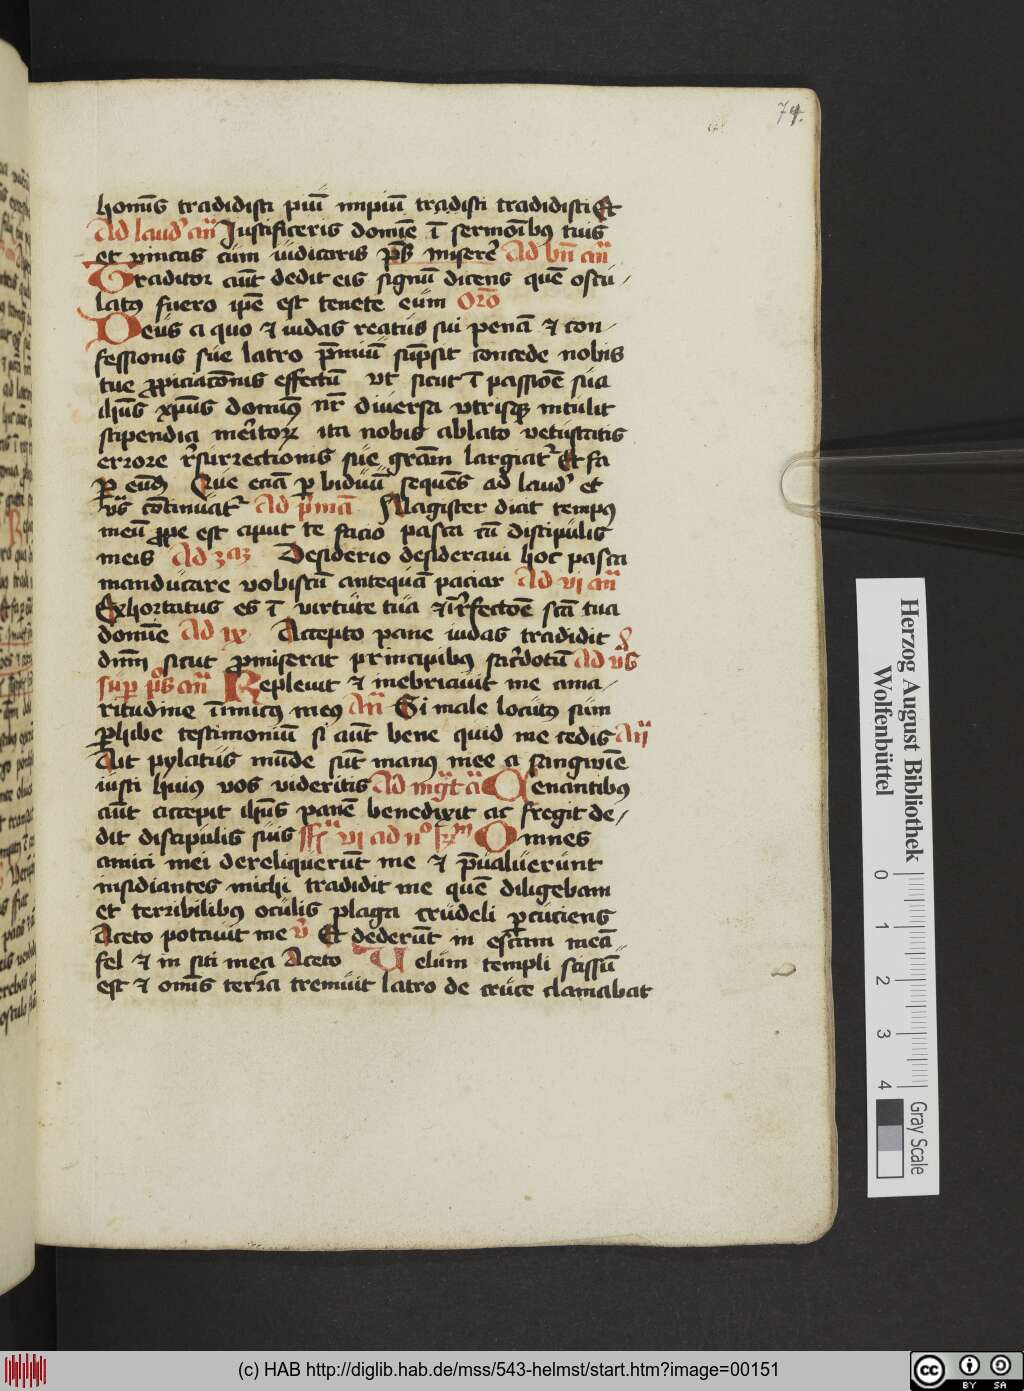 74.
homīs tradidisti piū impiū tradisti tradidisti Et
Ad laud' añ Justificeris domīe ī sermoībꝯ tuis
et vincas cum iudicaris p̄s Miserē Ad bn̄ añ
Traditor aūt dedit eis signū dicens quē oscu-
latꝯ fuero ip̄e est tenete eum Orō
Deus a quo ⁊ iudas reatus sui penā ⁊ con-
fessionis sue latro p̄miū sūpsit concede nobis
tue ꝓpiciacōnis effectū vt sicut ī passiōe sua
ihūs xp̄us dominꝯ nr̄ diversa vtrisqꝫ intulit
stipendia meritoꝝ ita nobis ablato vetustatis
errore rēsurrectionis sue grām largiat᷑ Et fa
ꝑ eundꝫ Que eciā ꝑ biduū sequēs ad laud' et
vs̄ cōtinuāt᷑ Ad p̄mā Magister dicit tempꝯ
meū ꝓpe est aput te facio pasca cū discipulis
meis Ad 3am Desiderio desideraui hoc pasca
manducare vobiscū antequā paciar Ad vi añ
Exhortatus es ī virtute tua ⁊ ī rēfectōe scā tua
domīe Ad ix Accepto pane iudas tradidit
dn̄m sicut ꝓmiserat principibꝯ sacērdotū Ad vs̄
suꝑ p̄s añ Repleuit ⁊ inebriauit me ama-
ritudine īimicꝯ meꝯ Añ Si male locutꝯ sum
ꝑhibe testimoniū si aūt bene quid me cedis Añ
Ait pylatus mūde sūt manꝯ mee a sangwīe
iusti huiꝯ vos videritis Ad mḡt ā Cenantibꝯ
aūt accepit ihūs panē benedixit ac fregit de-
dit discipulis suis vi ad nō Omnes
amici mei dereliquerūt me ⁊ p̄ualuerunt
insidiantes michi tradidit me quē diligebam
et terribilibꝯ oculis plaga crudeli ꝑcuciens
Aceto potauit me v̄ Et dederūt in escam meā
fel ⁊ in siti mea Aceto Velum templi scissū
est ⁊ omīs terrā tremuit latro de cruce clamabat
Herzog August Bibliothek
Wolfenbüttel
0 1 2 3 4
Gray Scale
(c) HAB http://diglib.hab.de/mss/543-helmst/start.htm?image=00151
cc BY SA